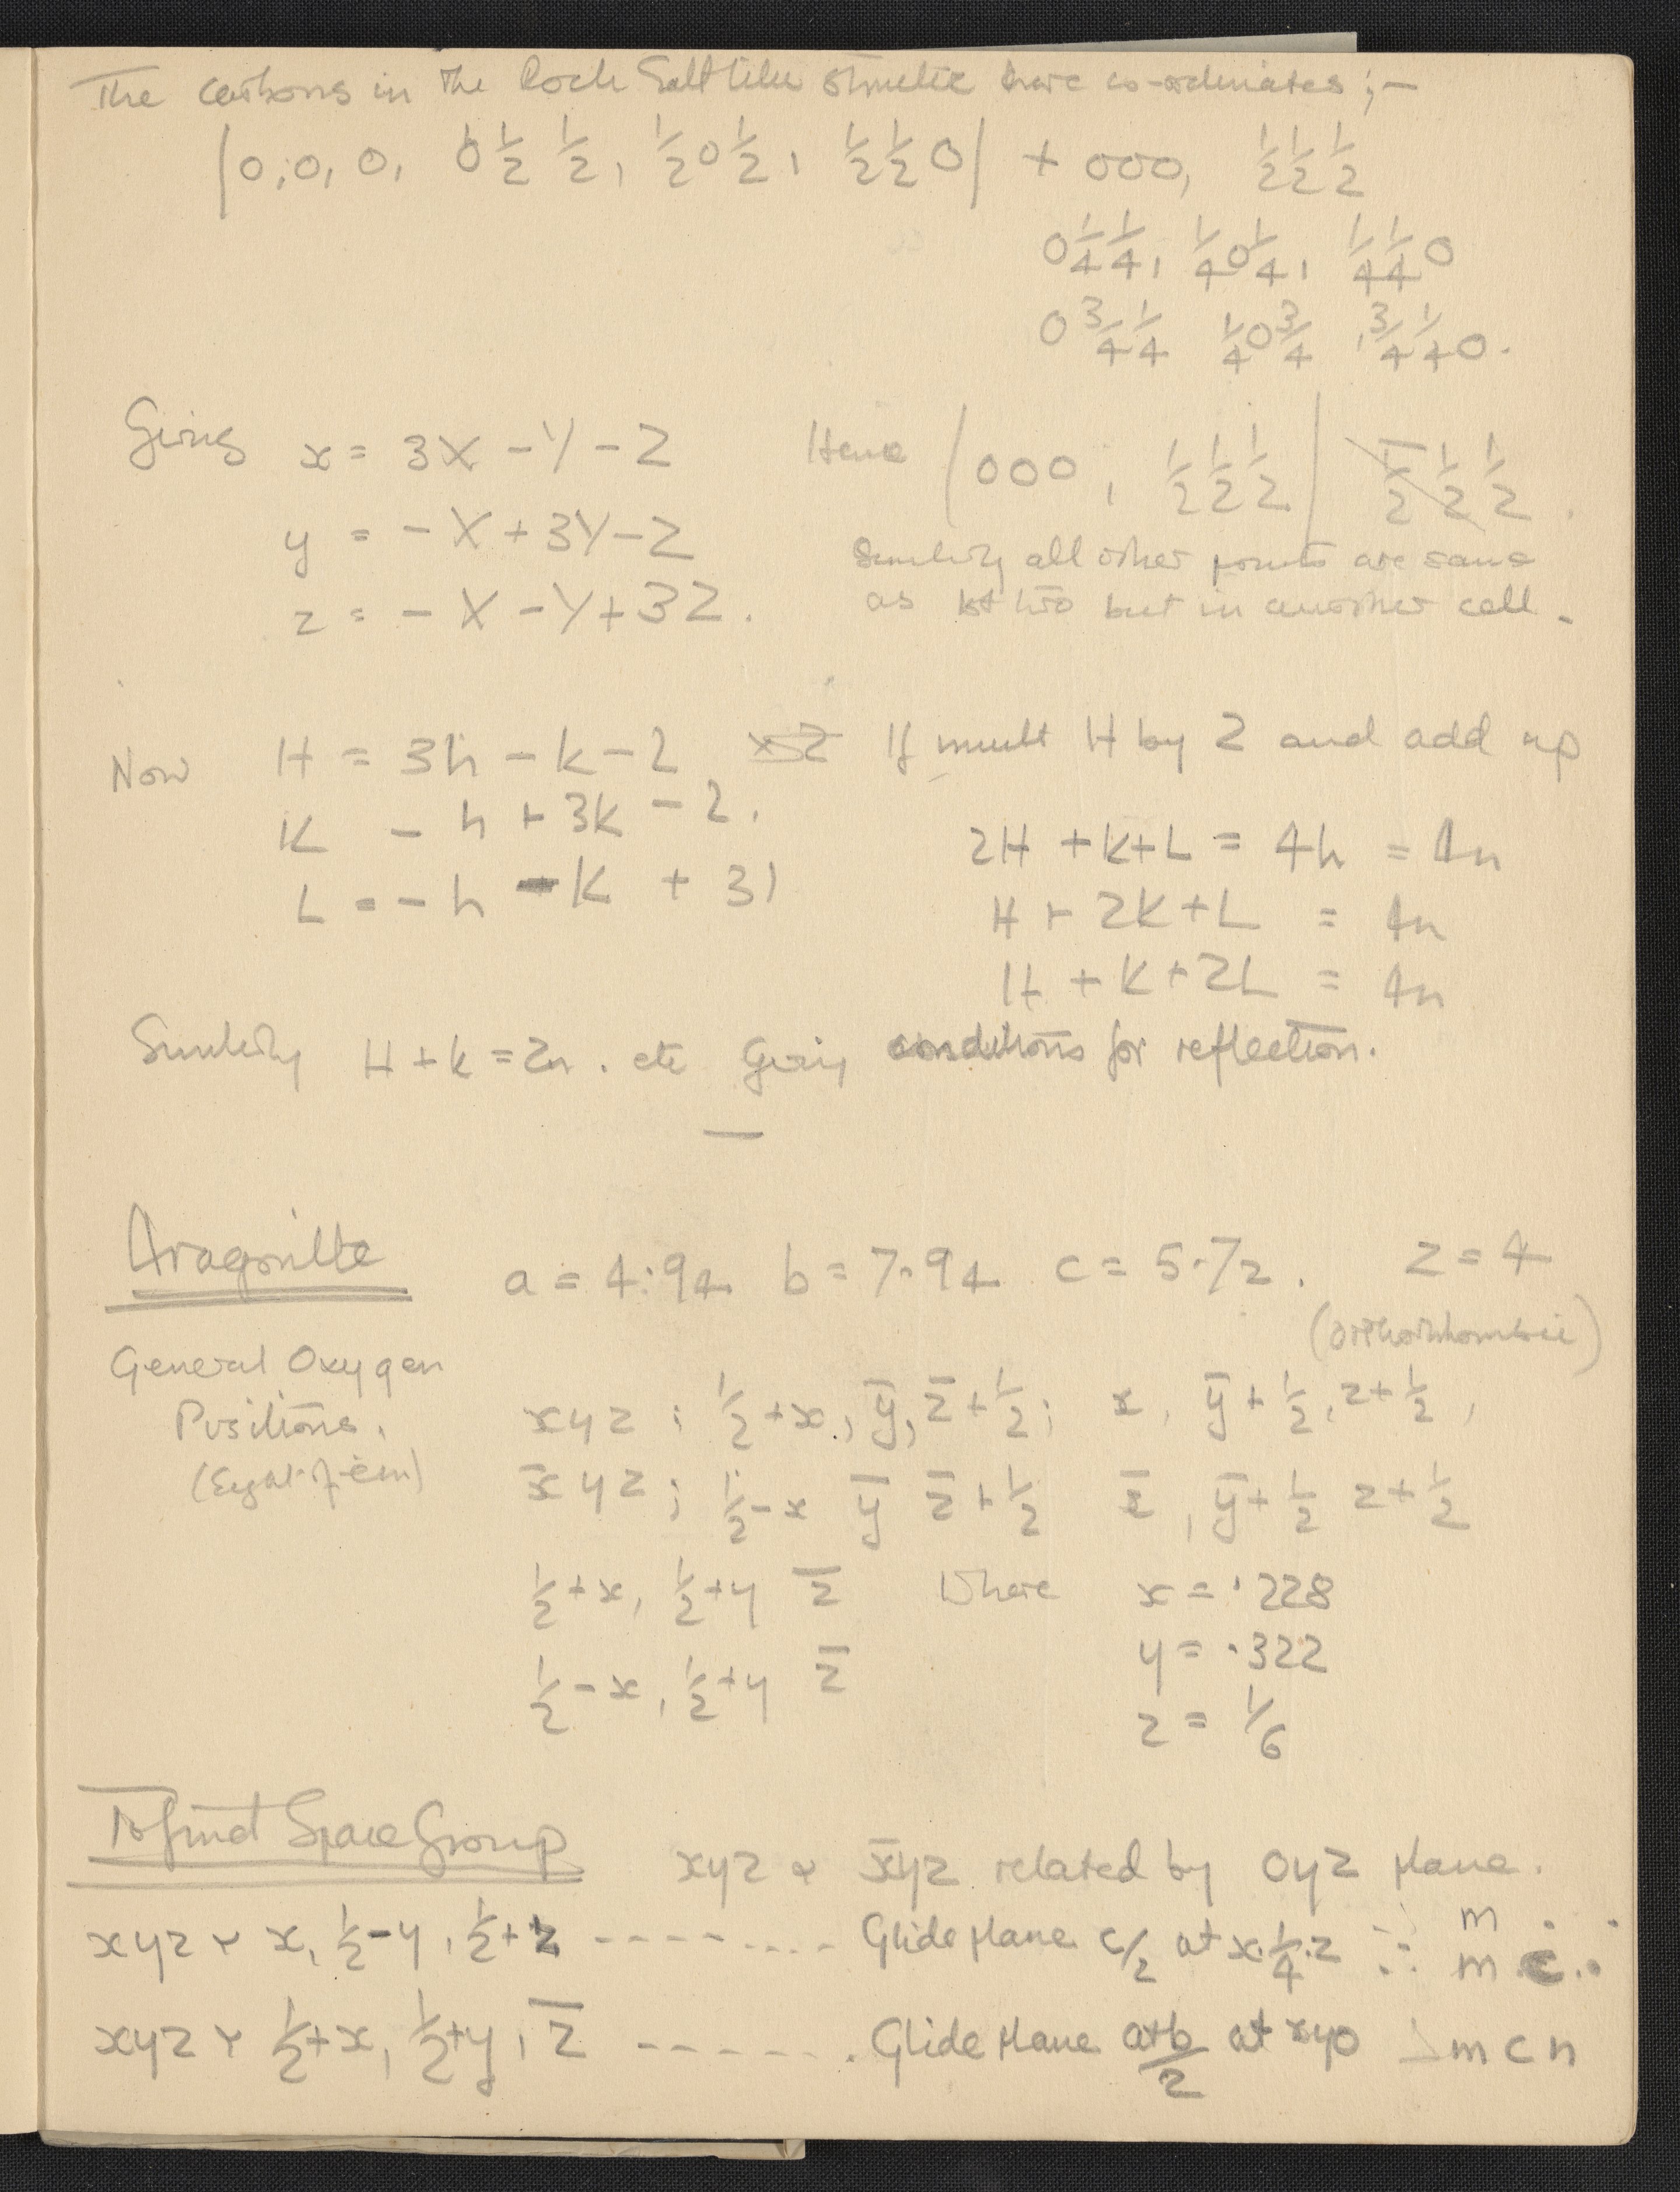 The carbons in the Rock Salt like structure have co-ordinates ;—
|0,0,0, 0 1/2 1/2, 1/2 0 1/2, 1/2 1/2 0| + 000, 1/2 1/2 1/2
0 1/4 1/4, 1/4 0 1/4, 1/4 1/4 0
0 3/4 1/4 1/4 0 3/4, 3/4 1/4 0.
Giving x = 3X - Y - Z
y = - X + 3Y - Z
z = - X - Y + 3Z.
Hence |000, 1/2 1/2 1/2|
Similarly all other points are same
as 1st two but in another cell.
Now H = 3h - k - l,
K - h + 3k - l.
L = - h - k + 3l
If mult H by 2 and add up
2H + K + L = 4h = 4n
H + 2K + L = 4n
H + K + 2L = 4n
Similarly H + K = 2n. etc Giving conditions for reflection.
—
Aragonite a = 4.94 b = 7.94 c = 5.72. Z = 4
(orthorhombic)
General Oxygen
Positions.
xyz ; 1/2+x, ȳ, z̄+1/2; x, ȳ+1/2, z+1/2,
x̄yz ; 1/2-x ȳ z̄+1/2 x̄, ȳ+1/2 z+1/2
1/2+x, 1/2+y z̄ where x = .228
y = .322
1/2-x, 1/2+y z̄
z = 1/6
To find Space Group xyz & x̄yz related by 0yz plane.
xyz & x, 1/2-y, 1/2+z --------- Glide plane c/2 at x.1/4.z ∴ m c .
m . .
xyz & 1/2+x, 1/2+y, z̄ ------. Glide plane a+b/2 at xy0 ∴ m c n